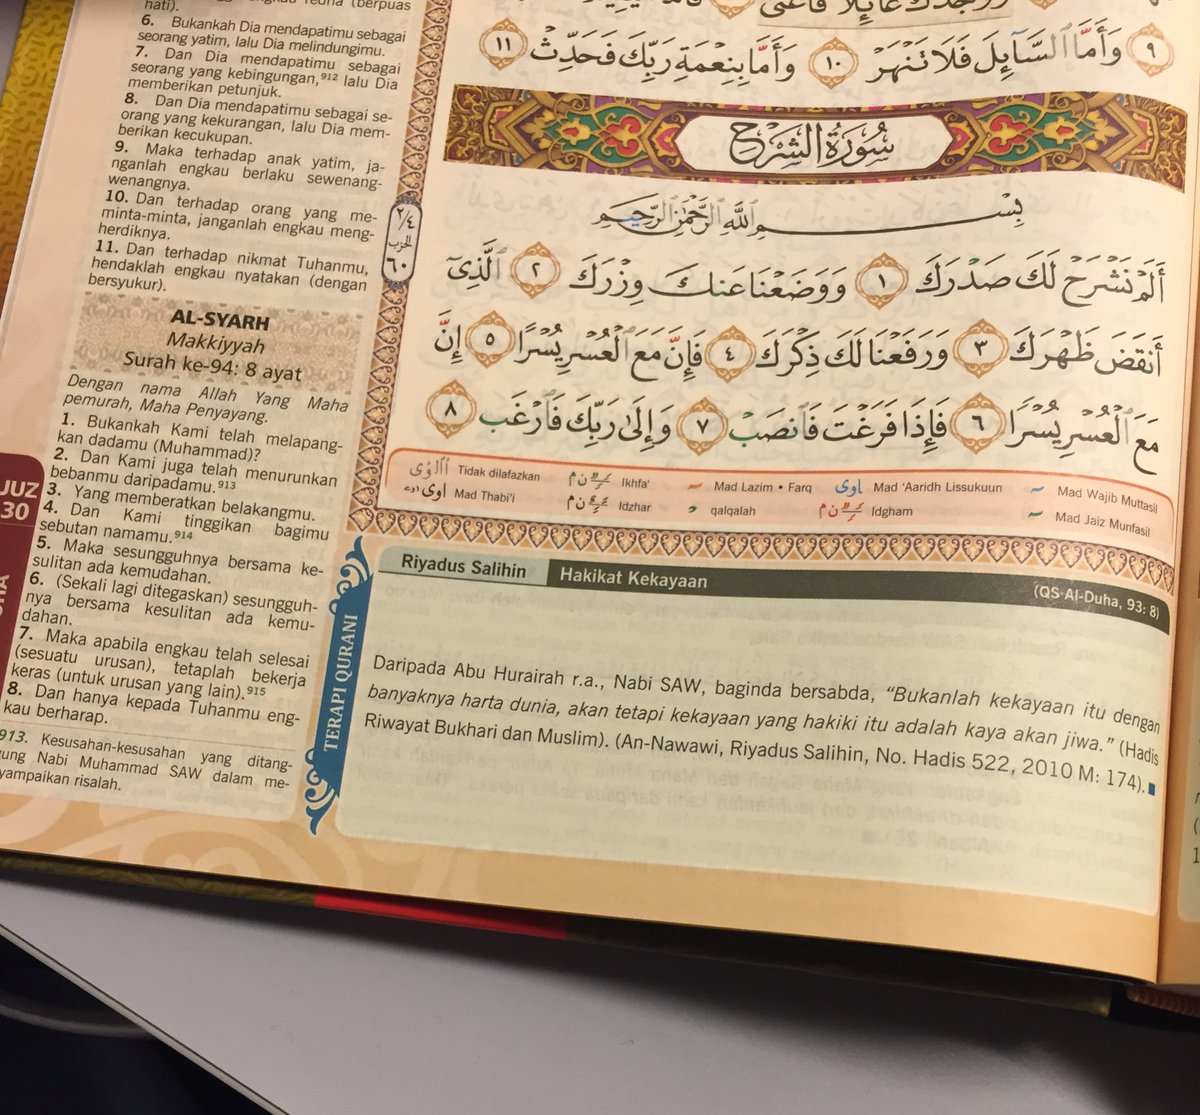 hati).
6. Bukankah Dia mendapatimu sebagai
seorang yatim, lalu Dia melindungimu.
7. Dan Dia mendapatimu sebagai
seorang yang kebingungan,⁹¹² lalu Dia
memberikan petunjuk.
8. Dan Dia mendapatimu sebagai se-
orang yang kekurangan, lalu Dia mem-
berikan kecukupan.
9. Maka terhadap anak yatim, ja-
nganlah engkau berlaku sewenang-
wenangnya.
10. Dan terhadap orang yang me-
minta-minta, janganlah engkau meng-
herdiknya.
11. Dan terhadap nikmat Tuhanmu,
hendaklah engkau nyatakan (dengan
bersyukur).
AL-SYARH
Makkiyyah
Surah ke-94: 8 ayat
Dengan nama Allah Yang Maha
pemurah, Maha Penyayang.
1. Bukankah Kami telah melapang-
kan dadamu (Muhammad)?
2. Dan Kami juga telah menurunkan
bebanmu daripadamu.⁹¹³
3. Yang memberatkan belakangmu.
4. Dan Kami tinggikan bagimu
sebutan namamu.⁹¹⁴
5. Maka sesungguhnya bersama ke-
sulitan ada kemudahan.
6. (Sekali lagi ditegaskan) sesungguh-
nya bersama kesulitan ada kemu-
dahan.
7. Maka apabila engkau telah selesai
(sesuatu urusan), tetaplah bekerja
keras (untuk urusan yang lain).⁹¹⁵
8. Dan hanya kepada Tuhanmu eng-
kau berharap.
913. Kesusahan-kesusahan yang ditang-
gung Nabi Muhammad SAW dalam me-
nyampaikan risalah.
JUZ
30
٢/٤
الحزب
٦٠
٩ وَأَمَّا ٱلسَّآئِلَ فَلَا تَنْهَرْ ١٠ وَأَمَّا بِنِعْمَةِ رَبِّكَ فَحَدِّثْ ١١
سُورَةُ الشَّرْحِ
بِسْمِ ٱللَّهِ ٱلرَّحْمَٰنِ ٱلرَّحِيمِ
أَلَمْ نَشْرَحْ لَكَ صَدْرَكَ ١ وَوَضَعْنَا عَنكَ وِزْرَكَ ٢ ٱلَّذِىٓ
أَنقَضَ ظَهْرَكَ ٣ وَرَفَعْنَا لَكَ ذِكْرَكَ ٤ فَإِنَّ مَعَ ٱلْعُسْرِ يُسْرًا ٥ إِنَّ
مَعَ ٱلْعُسْرِ يُسْرًا ٦ فَإِذَا فَرَغْتَ فَٱنصَبْ ٧ وَإِلَىٰ رَبِّكَ فَٱرْغَب ٨
Tidak dilafazkan Ikhfa' Mad Lazim • Farq Mad 'Aaridh Lissukuun Mad Wajib Muttasil
Mad Thabi'i Idzhar qalqalah Idgham Mad Jaiz Munfasil
TERAPI QURANI
Riyadus Salihin Hakikat Kekayaan (QS Al-Duha, 93: 8)
Daripada Abu Hurairah r.a., Nabi SAW, baginda bersabda, “Bukanlah kekayaan itu dengan
banyaknya harta dunia, akan tetapi kekayaan yang hakiki itu adalah kaya akan jiwa.” (Hadis
Riwayat Bukhari dan Muslim). (An-Nawawi, Riyadus Salihin, No. Hadis 522, 2010 M: 174).